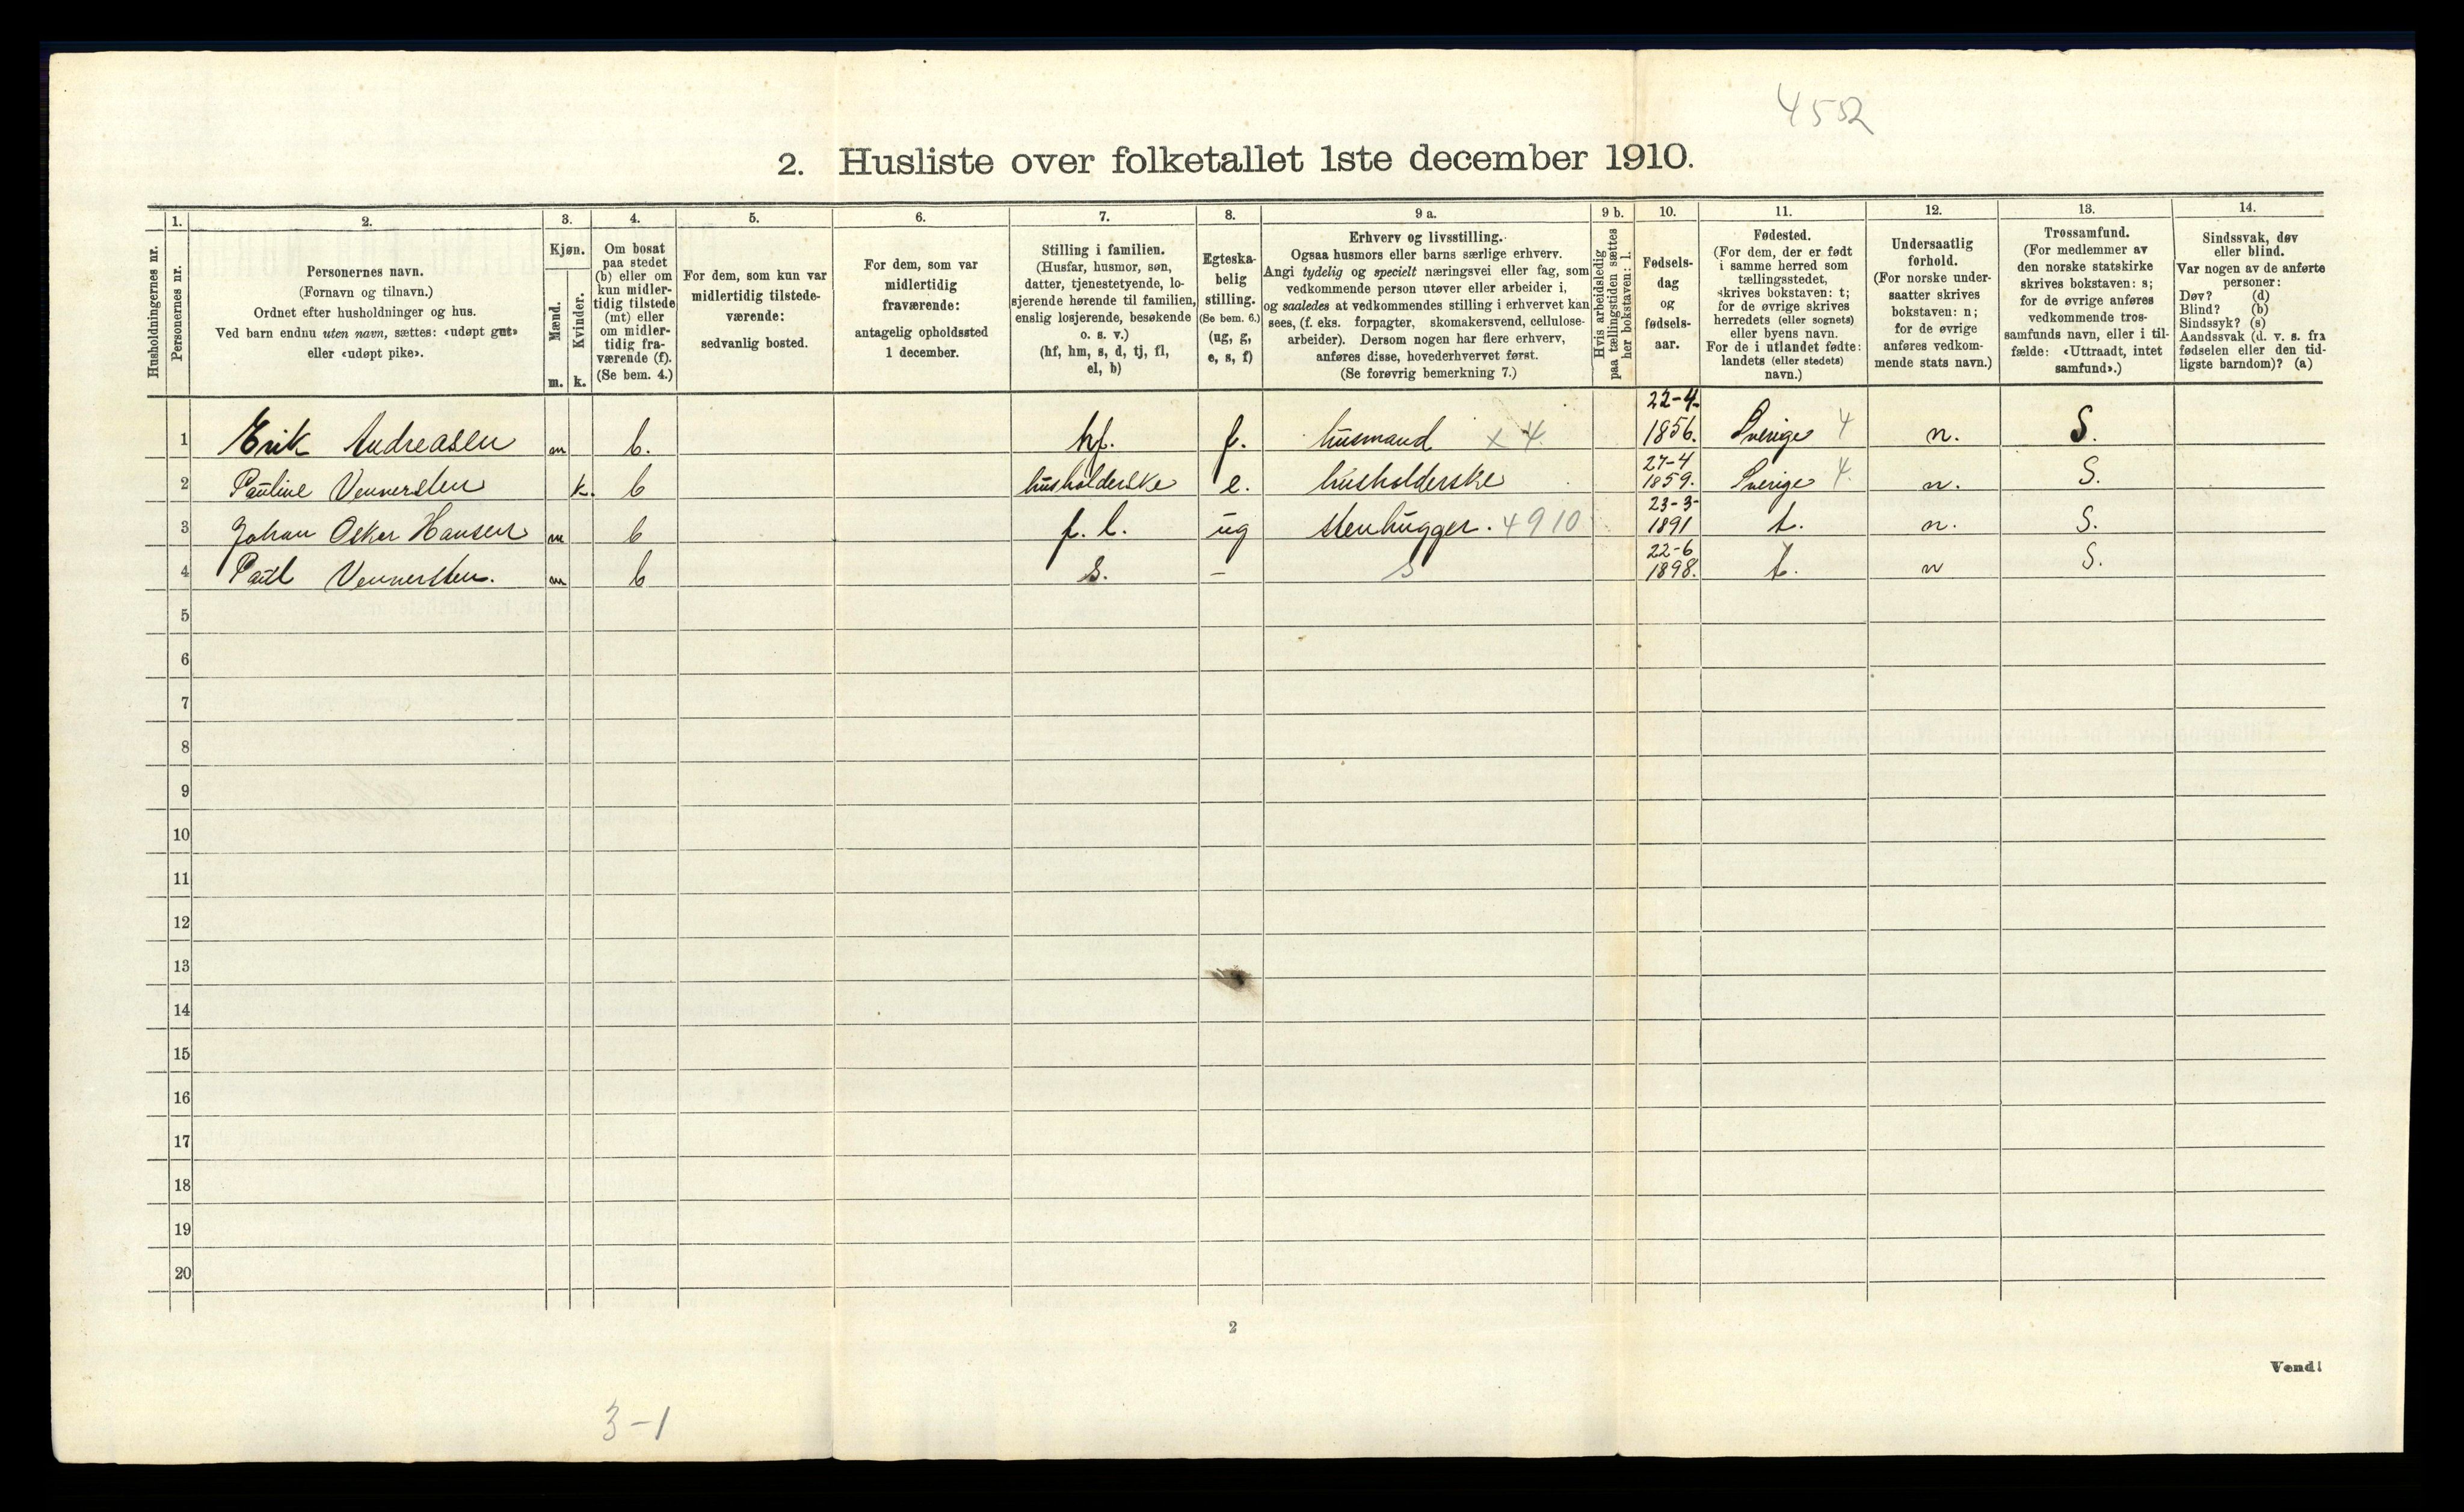 4552
2. Husliste over folketallet 1ste december 1910.
Husholdningernes nr.
1.
Personernes nr.
2.
Personernes navn.
(Fornavn og tilnavn.)
Ordnet efter husholdninger og hus.
Ved barn endnu uten navn, sættes: «udøpt gut»
eller «udøpt pike».
3.
Kjøn.
Mænd.
m.
Kvinder.
k.
4.
Om bosat
paa stedet
(b) eller om
kun midler-
tidig tilstede
(mt) eller
om midler-
tidig fra-
værende (f).
(Se bem. 4.)
5.
For dem, som kun var
midlertidig tilstede-
værende:
sedvanlig bosted.
6.
For dem, som var
midlertidig
fraværende:
antagelig opholdssted
1 december.
7.
Stilling i familien.
(Husfar, husmor, søn,
datter, tjenestetyende, lo-
sjerende hørende til familien,
enslig losjerende, besøkende
o. s. v.)
(hf, hm, s, d, tj, fl,
el, b)
8.
Egteska-
belig
stilling.
(Se bem. 6.)
(ug, g,
e, s, f)
9 a.
Erhverv og livsstilling.
Ogsaa husmors eller barns særlige erhverv.
Angi tydelig og specielt næringsvei eller fag, som
vedkommende person utøver eller arbeider i,
og saaledes at vedkommendes stilling i erhvervet kan
sees, (f. eks. forpagter, skomakersvend, cellulose-
arbeider). Dersom nogen har flere erhverv,
anføres disse, hovederhvervet først.
(Se forøvrig bemerkning 7.)
9 b.
Hvis arbeidsledig
paa tællingstiden sættes
her bokstaven: l.
10.
Fødsels-
dag
og
fødsels-
aar.
11.
Fødested.
(For dem, der er født
i samme herred som
tællingsstedet,
skrives bokstaven: t;
for de øvrige skrives
herredets (eller sognets)
eller byens navn.
For de i utlandet fødte:
landets (eller stedets)
navn.)
12.
Undersaatlig
forhold.
(For norske under-
saatter skrives
bokstaven: n;
for de øvrige
anføres vedkom-
mende stats navn.)
13.
Trossamfund.
(For medlemmer av
den norske statskirke
skrives bokstaven: s;
for de øvrige anføres
vedkommende tros-
samfunds navn, eller i til-
fælde: «Uttraadt, intet
samfund».)
14.
Sindssvak, døv
eller blind.
Var nogen av de anførte
personer:
Døv? (d)
Blind? (b)
Sindssyk? (s)
Aandssvak (d. v. s. fra
fødselen eller den tid-
ligste barndom)? (a)
1 Erik Andreasen m b. hf. f. husmand x 4 22-4. 1856. Sverige 4 n. S.
2 Pauline Vennersten k. b husholderske e. husholderske 27-4 1859. Sverige 4. n. S.
3 Johan Oskar Hansen m b f. l. ug stenhugger. 4910 23-3- 1891 t. n. S.
4 Paul Vennersten. m b s. – S 22-6 1898. t. n S.
5
6
7
8
9
10
11
12
13
14
15
16
17
18
19
20
2
Vend!
3-1